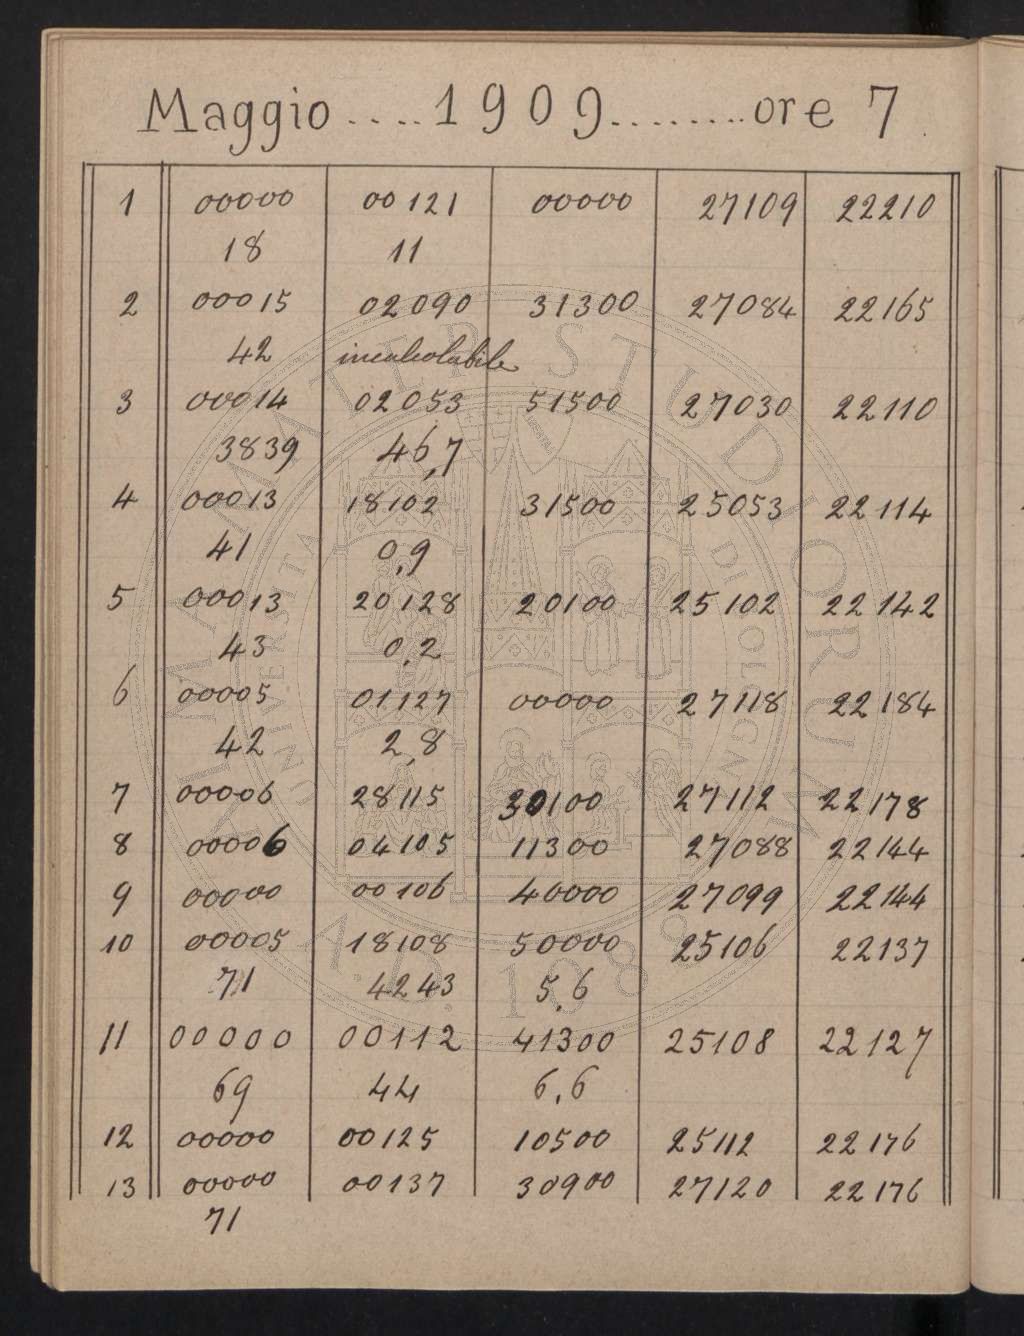 Maggio .... 1909 ........ ore 7
1 00000 00121 00000 27109 22210
18 11
2 00015 02090 31300 27084 22165
42 incalcolabile
3 00014 02053 51500 27030 22110
3839 46,7
4 00013 18102 31500 25053 22114
41 0,9
5 00013 20128 20100 25102 22142
43 0,2
6 00005 01127 00000 27118 22184
42 2,8
7 00006 28115 30100 27112 22178
8 00006 04105 11300 27088 22144
9 00000 00106 40000 27099 22144
10 00005 18108 50000 25106 22137
71 4243 5,6
11 00000 00112 41300 25108 22127
69 44 6,6
12 00000 00125 10500 25112 22176
13 00000 00137 30900 27120 22176
71
ALMA MATER STUDIORUM
UNIVERSITA DI BOLOGNA
A.D. 1088